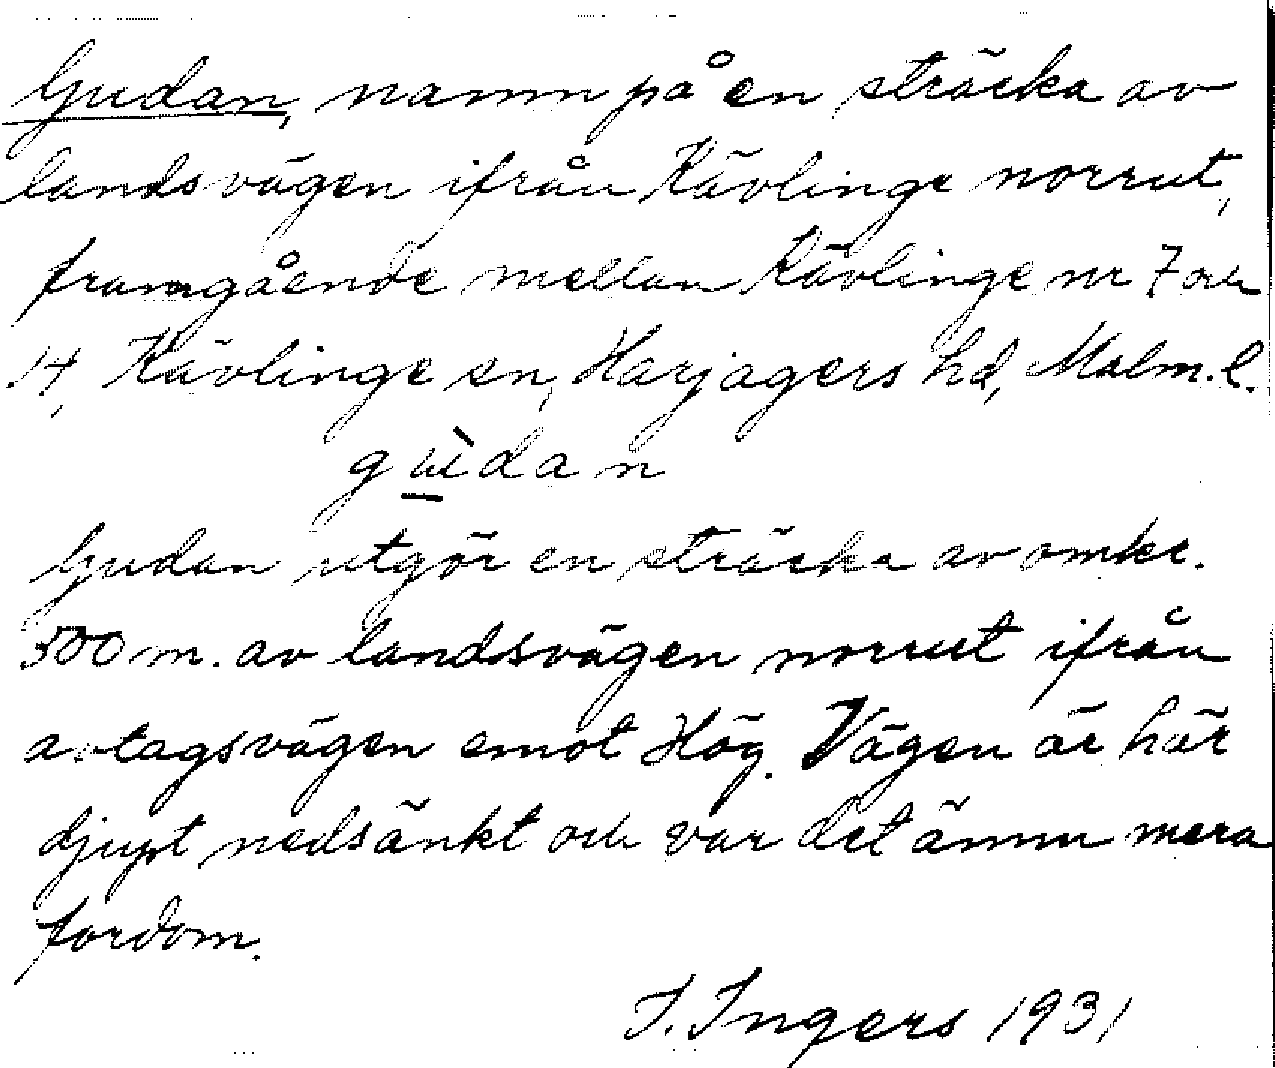 Gudan, namn på en sträcka av
landsvägen ifrån Kävlinge norrut,
framgående mellan Kävlinge nr 7 och
14, Kävlinge sn, Harjagers hd, Malm.l.
gùdan
Gudan utgör en sträcka av omkr.
500 m. av landsvägen norrut ifrån
avtagsvägen emot Hög. Vägen är här
djupt nedsänkt och var det ännu mera
fordom.
I. Ingers 1931